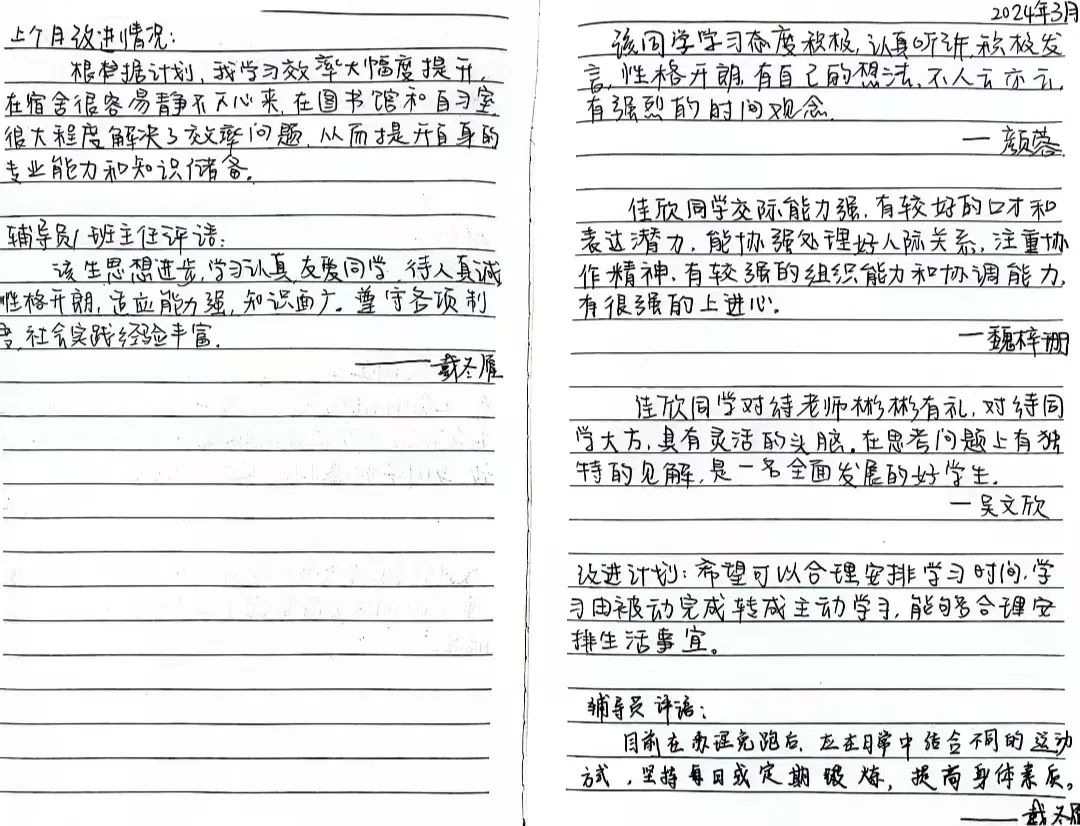 上个月改进情况：
根据计划，我学习效率大幅度提升，
在宿舍很容易静不下心来，在图书馆和自习室
很大程度解决了效率问题，从而提升自身的
专业能力和知识储备。
辅导员/班主任评语：
该生思想进步，学习认真，友爱同学，待人真诚
性格开朗，适应能力强，知识面广。遵守各项制
度，社会实践经验丰富。
——戴冬雁
2024年3月
该同学学习态度积极，认真听讲，积极发
言，性格开朗，有自己的想法，不人云亦云，
有强烈的时间观念。
—颜蓉
佳欣同学交际能力强，有较好的口才和
表达潜力，能协强处理好人际关系，注重协
作精神，有较强的组织能力和协调能力，
有很强的上进心。
—魏梓珊
佳欣同学对待老师彬彬有礼，对待同
学大方，具有灵活的头脑。在思考问题上有独
特的见解，是一名全面发展的好学生。
—吴文欣
改进计划：希望可以合理安排学习时间，学
习由被动完成转成主动学习，能够合理安
排生活事宜。
辅导员评语：
目前在办理免跑后，应在日常中结合不同的运动
方式，坚持每日或定期锻炼，提高身体素质。
——戴冬雁